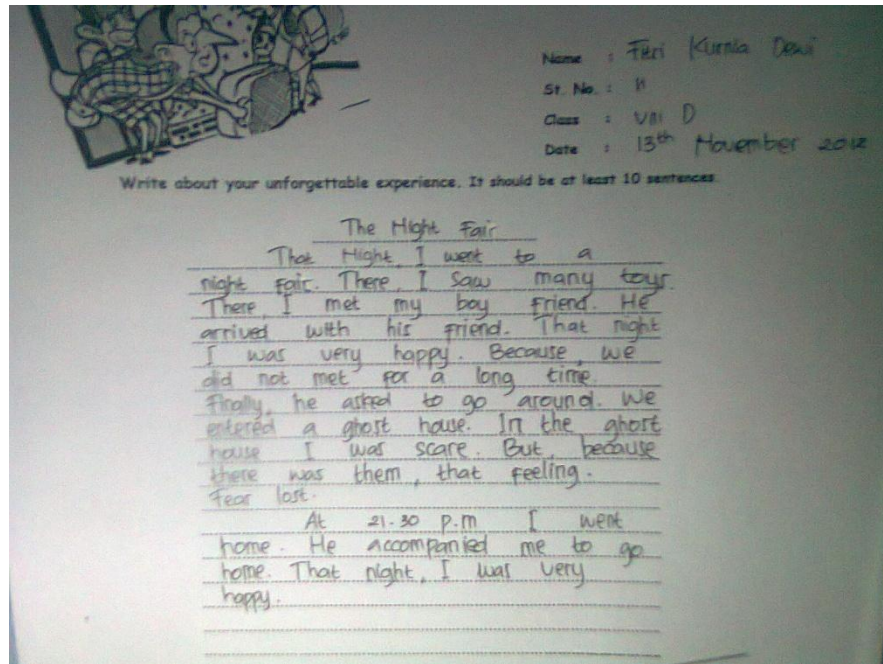 Name : Fitri Kurnia Dewi
St. No. : 11
Class : VIII D
Date : 13th November 2012
Write about your unforgettable experience. It should be at least 10 sentences.
The Night Fair
That Night, I went to a
night fair. There, I saw many toys.
There, I met my boy friend. He
arrived with his friend. That night
I was very happy. Because, we
did not met for a long time.
Finally, he asked to go around. We
entered a ghost house. In the ghost
house I was scare. But, because
there was them, that feeling.
Fear lost.
At 21.30 p.m I went
home. He accompanied me to go
home. That night, I was very
happy.